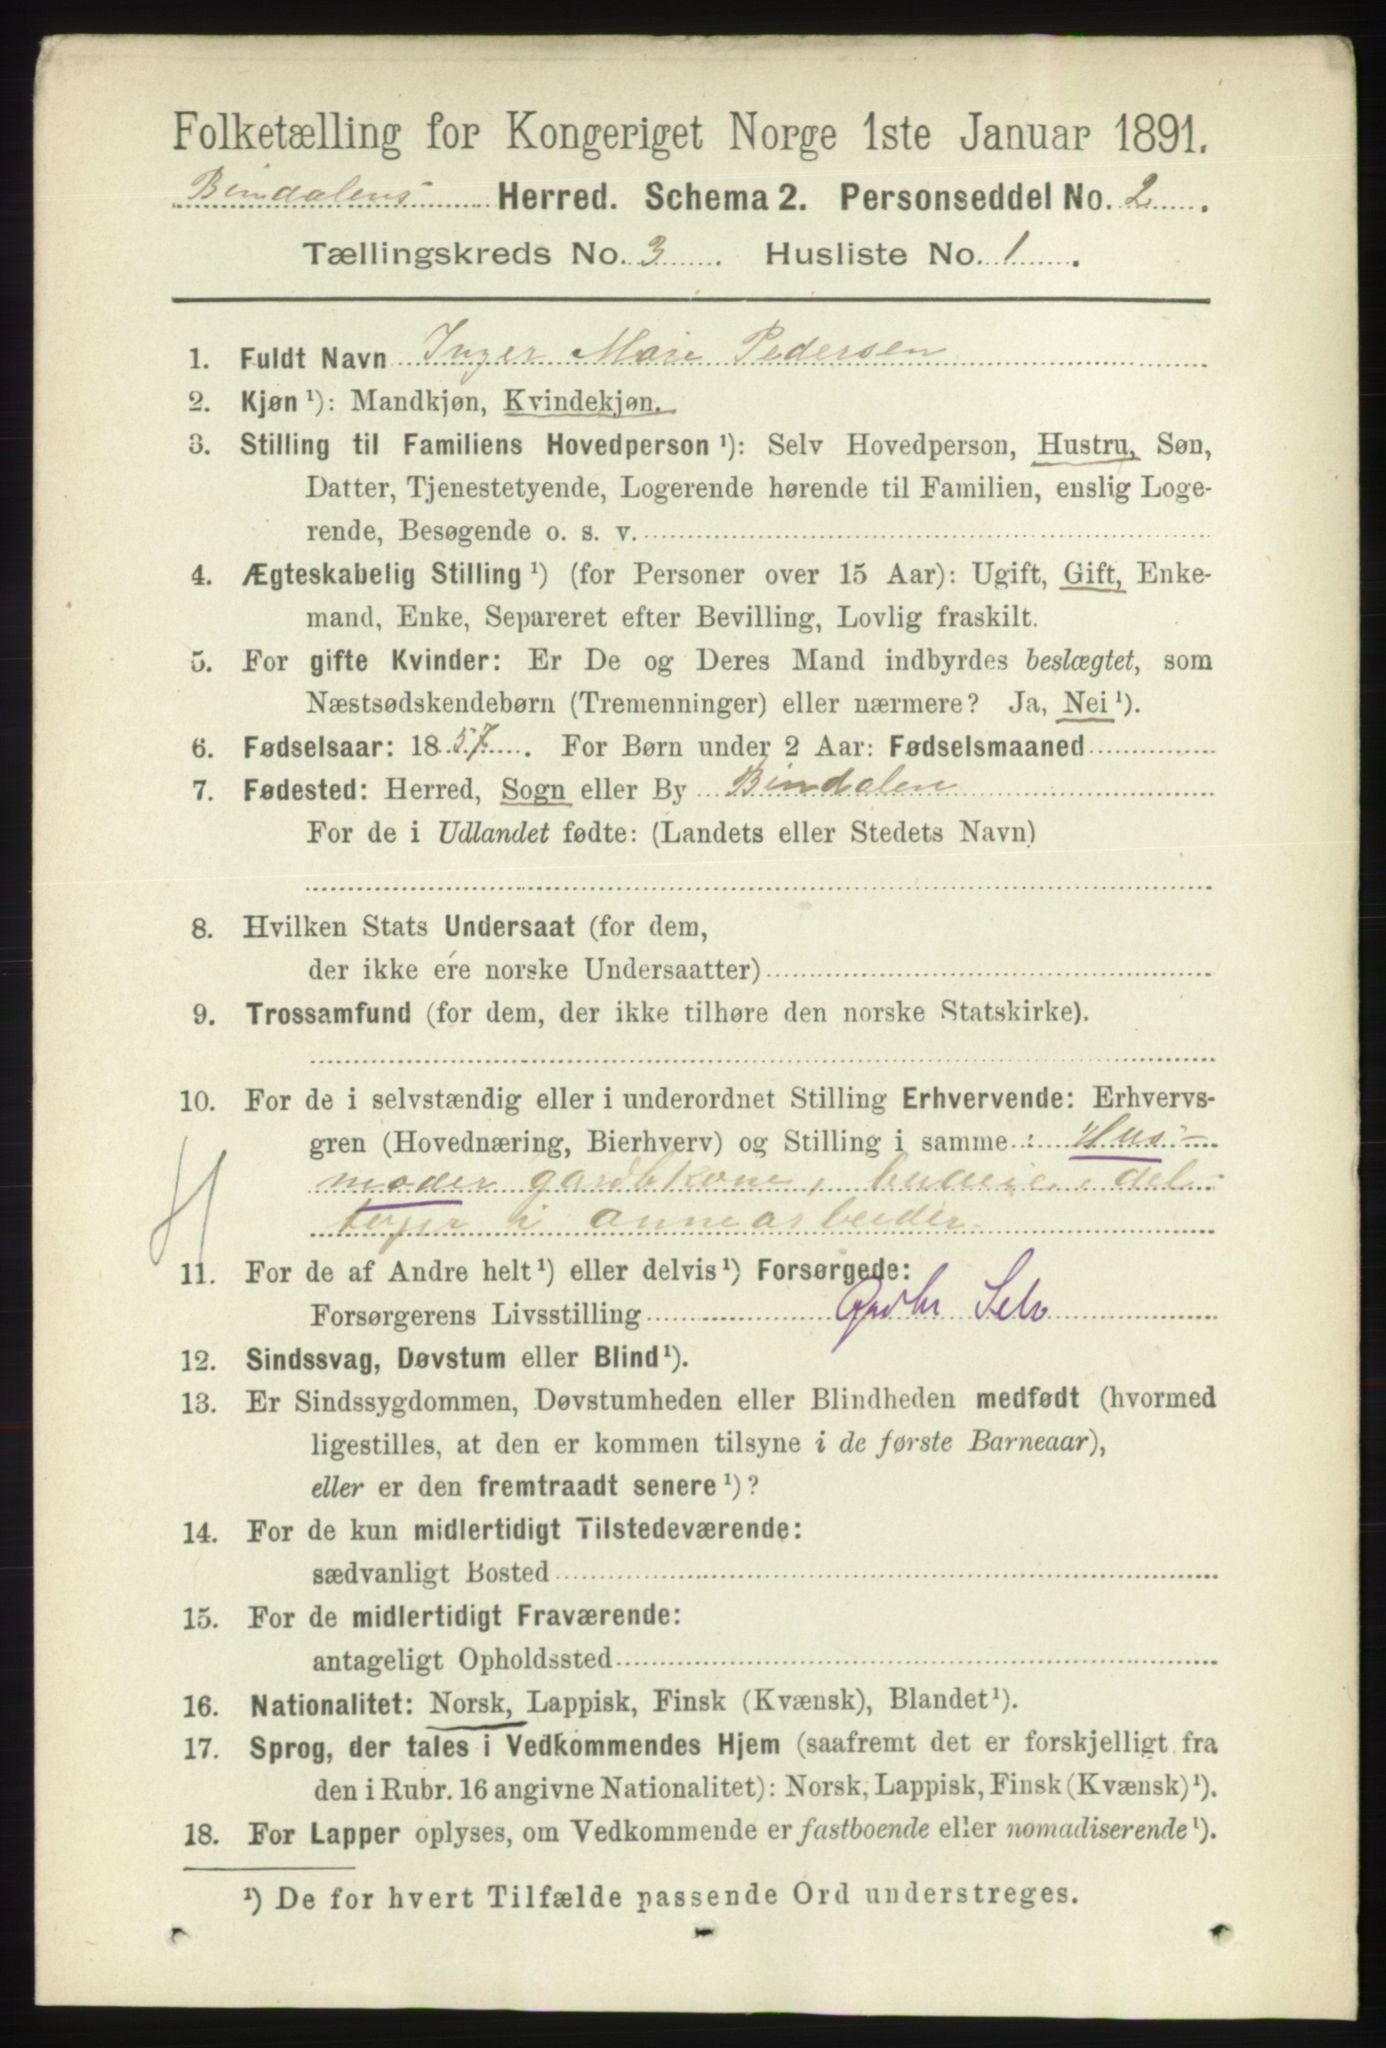 Folketælling for Kongeriget Norge 1ste Januar 1891.
Bindalens Herred. Schema 2. Personseddel No. 2.
Tællingskreds No. 3. Husliste No. 1.
1. Fuldt Navn Inger Marie Pedersen
2. Kjøn ¹): Mandkjøn, Kvindekjøn.
3. Stilling til Familiens Hovedperson ¹): Selv Hovedperson, Hustru, Søn,
Datter, Tjenestetyende, Logerende hørende til Familien, enslig Loge-
rende, Besøgende o. s. v.
4. Ægteskabelig Stilling ¹) (for Personer over 15 Aar): Ugift, Gift, Enke-
mand, Enke, Separeret efter Bevilling, Lovlig fraskilt.
5. For gifte Kvinder: Er De og Deres Mand indbyrdes beslægtet, som
Næstsødskendebørn (Tremenninger) eller nærmere? Ja, Nei ¹).
6. Fødselsaar: 1857. For Børn under 2 Aar: Fødselsmaaned
7. Fødested: Herred, Sogn eller By Bindalen
For de i Udlandet fødte: (Landets eller Stedets Navn)
8. Hvilken Stats Undersaat (for dem,
der ikke ere norske Undersaatter)
9. Trossamfund (for dem, der ikke tilhøre den norske Statskirke).
10. For de i selvstændig eller i underordnet Stilling Erhvervende: Erhvervs-
gren (Hovednæring, Bierhverv) og Stilling i samme: Hus-
moder gardbkone, budeie, del-
tager i annearbeider
11. For de af Andre helt ¹) eller delvis ¹) Forsørgede:
Forsørgerens Livsstilling Gdbr Selv
12. Sindssvag, Døvstum eller Blind ¹).
13. Er Sindssygdommen, Døvstumheden eller Blindheden medfødt (hvormed
ligestilles, at den er kommen tilsyne i de første Barneaar),
eller er den fremtraadt senere ¹)?
14. For de kun midlertidigt Tilstedeværende:
sædvanligt Bosted
15. For de midlertidigt Fraværende:
antageligt Opholdssted
16. Nationalitet: Norsk, Lappisk, Finsk (Kvænsk), Blandet ¹).
17. Sprog, der tales i Vedkommendes Hjem (saafremt det er forskjelligt fra
den i Rubr. 16 angivne Nationalitet): Norsk, Lappisk, Finsk (Kvænsk) ¹).
18. For Lapper oplyses, om Vedkommende er fastboende eller nomadiserende ¹).
¹) De for hvert Tilfælde passende Ord understreges.